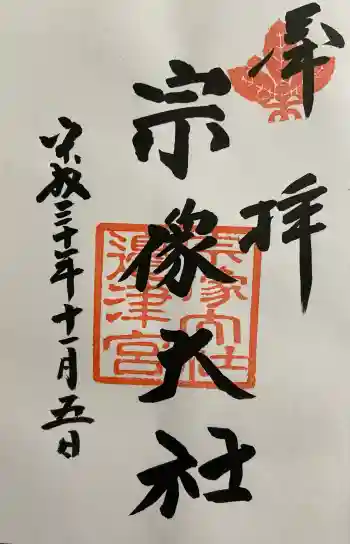 奉拝
宗像大社
宗像大社
邊津宮
平成三十年十一月五日